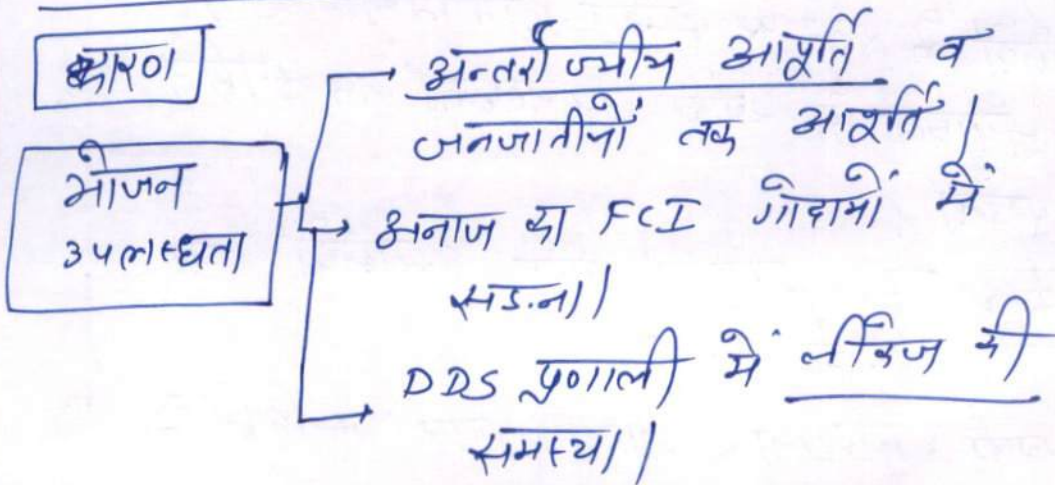 कारण
भोजन
उपलब्धता
अन्तर्राज्यीय आपूर्ति व
जनजातीयों तक आपूर्ति।
अनाज का FCI गोदामों में
सड़ना।
DDS प्रणाली में लीकेज की
समस्या।